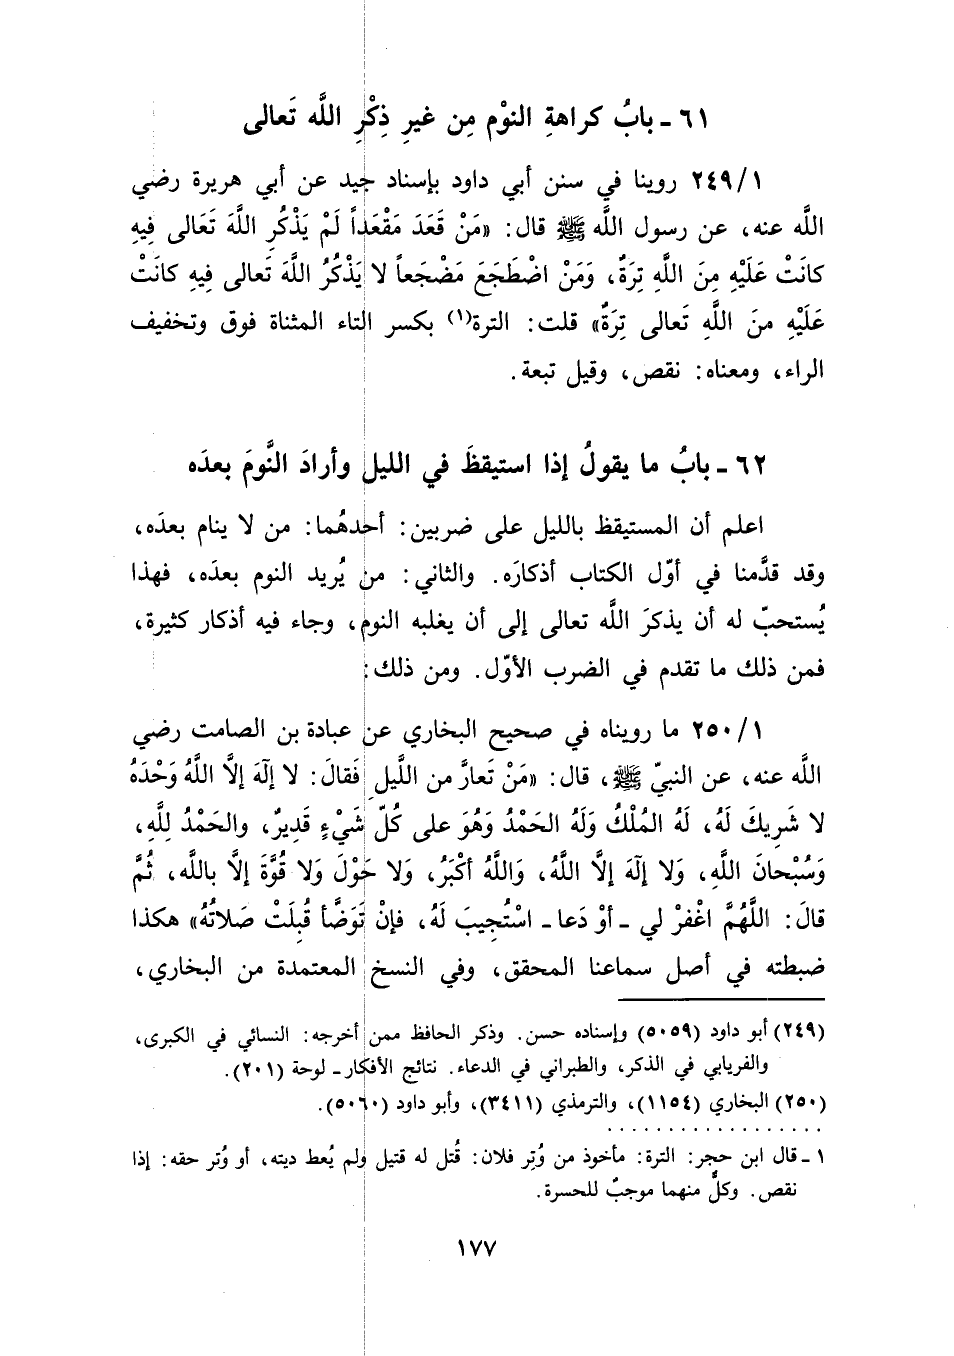 ٦١ ـ بابُ كراهةِ النوْم مِن غيرِ ذِكْرِ اللَّه تَعالى
٢٤٩/١ روينا في سنن أبي داود بإسناد جيد عن أبي هريرة رضي
اللَّه عنه، عن رسول اللَّه ﷺ قال: «مَنْ قَعَدَ مَقْعَداً لَمْ يَذْكُرِ اللَّهَ تَعَالى فِيهِ
كانَتْ عَلَيْهِ مِنَ اللَّهِ تِرَةٌ، وَمَنْ اضْطَجَعَ مَضْجَعاً لا يَذْكُرُ اللَّهَ تَعالى فِيهِ كانَتْ
عَلَيْهِ منَ اللَّهِ تَعالى تِرَةٌ» قلت: الترة(١) بكسر التاء المثناة فوق وتخفيف
الراء، ومعناه: نقص، وقيل تبعة.
٦٢ ـ بابُ ما يقولُ إذا استيقظَ في الليل وأرادَ النَّومَ بعدَه
اعلم أن المستيقظ بالليل على ضربين: أحدهُما: من لا ينام بعدَه،
وقد قدَّمنا في أوّل الكتاب أذكارَه. والثاني: من يُريد النوم بعدَه، فهذا
يُستحبّ له أن يذكرَ اللَّه تعالى إلى أن يغلبه النوم، وجاء فيه أذكار كثيرة،
فمن ذلك ما تقدم في الضرب الأوّل. ومن ذلك:
٢٥٠/١ ما رويناه في صحيح البخاري عن عبادة بن الصامت رضي
اللَّه عنه، عن النبيّ ﷺ، قال: «مَنْ تَعارَّ من اللَّيلِ فَقالَ: لا إلَهَ إلَّا اللَّهُ وَحْدَهُ
لا شَرِيكَ لَهُ، لَهُ المُلْكُ وَلَهُ الحَمْدُ وَهُوَ على كُلّ شَيْءٍ قَدِيرٌ، والحَمْدُ لِلَّهِ،
وَسُبْحانَ اللَّهِ، وَلا إلَهَ إلَّا اللَّهُ، وَاللَّهُ أكْبَرُ، وَلا حَوْلَ وَلا قُوَّةَ إلَّا باللَّه، ثُمَّ
قالَ: اللَّهُمَّ اغْفرْ لي ـ أوْ دَعا ـ اسْتُجِيبَ لَهُ، فإنْ تَوَضَّأ قُبِلَتْ صَلاتُهُ» هكذا
ضبطته في أصل سماعنا المحقق، وفي النسخ المعتمدة من البخاري،
(٢٤٩) أبو داود (٥٠٥٩) وإسناده حسن. وذكر الحافظ ممن أخرجه: النسائي في الكبرى،
والفريابي في الذكر، والطبراني في الدعاء. نتائج الأفكار ـ لوحة (٢٠١).
(٢٥٠) البخاري (١١٥٤)، والترمذي (٣٤١١)، وأبو داود (٥٠٦٠).
١ ـ قال ابن حجر: الترة: مأخوذ من وُتِر فلان: قُتل له قتيل ولم يُعط ديته، أو وُتر حقه: إذا
نقص. وكلٌّ منهما موجبٌ للحسرة.
١٧٧